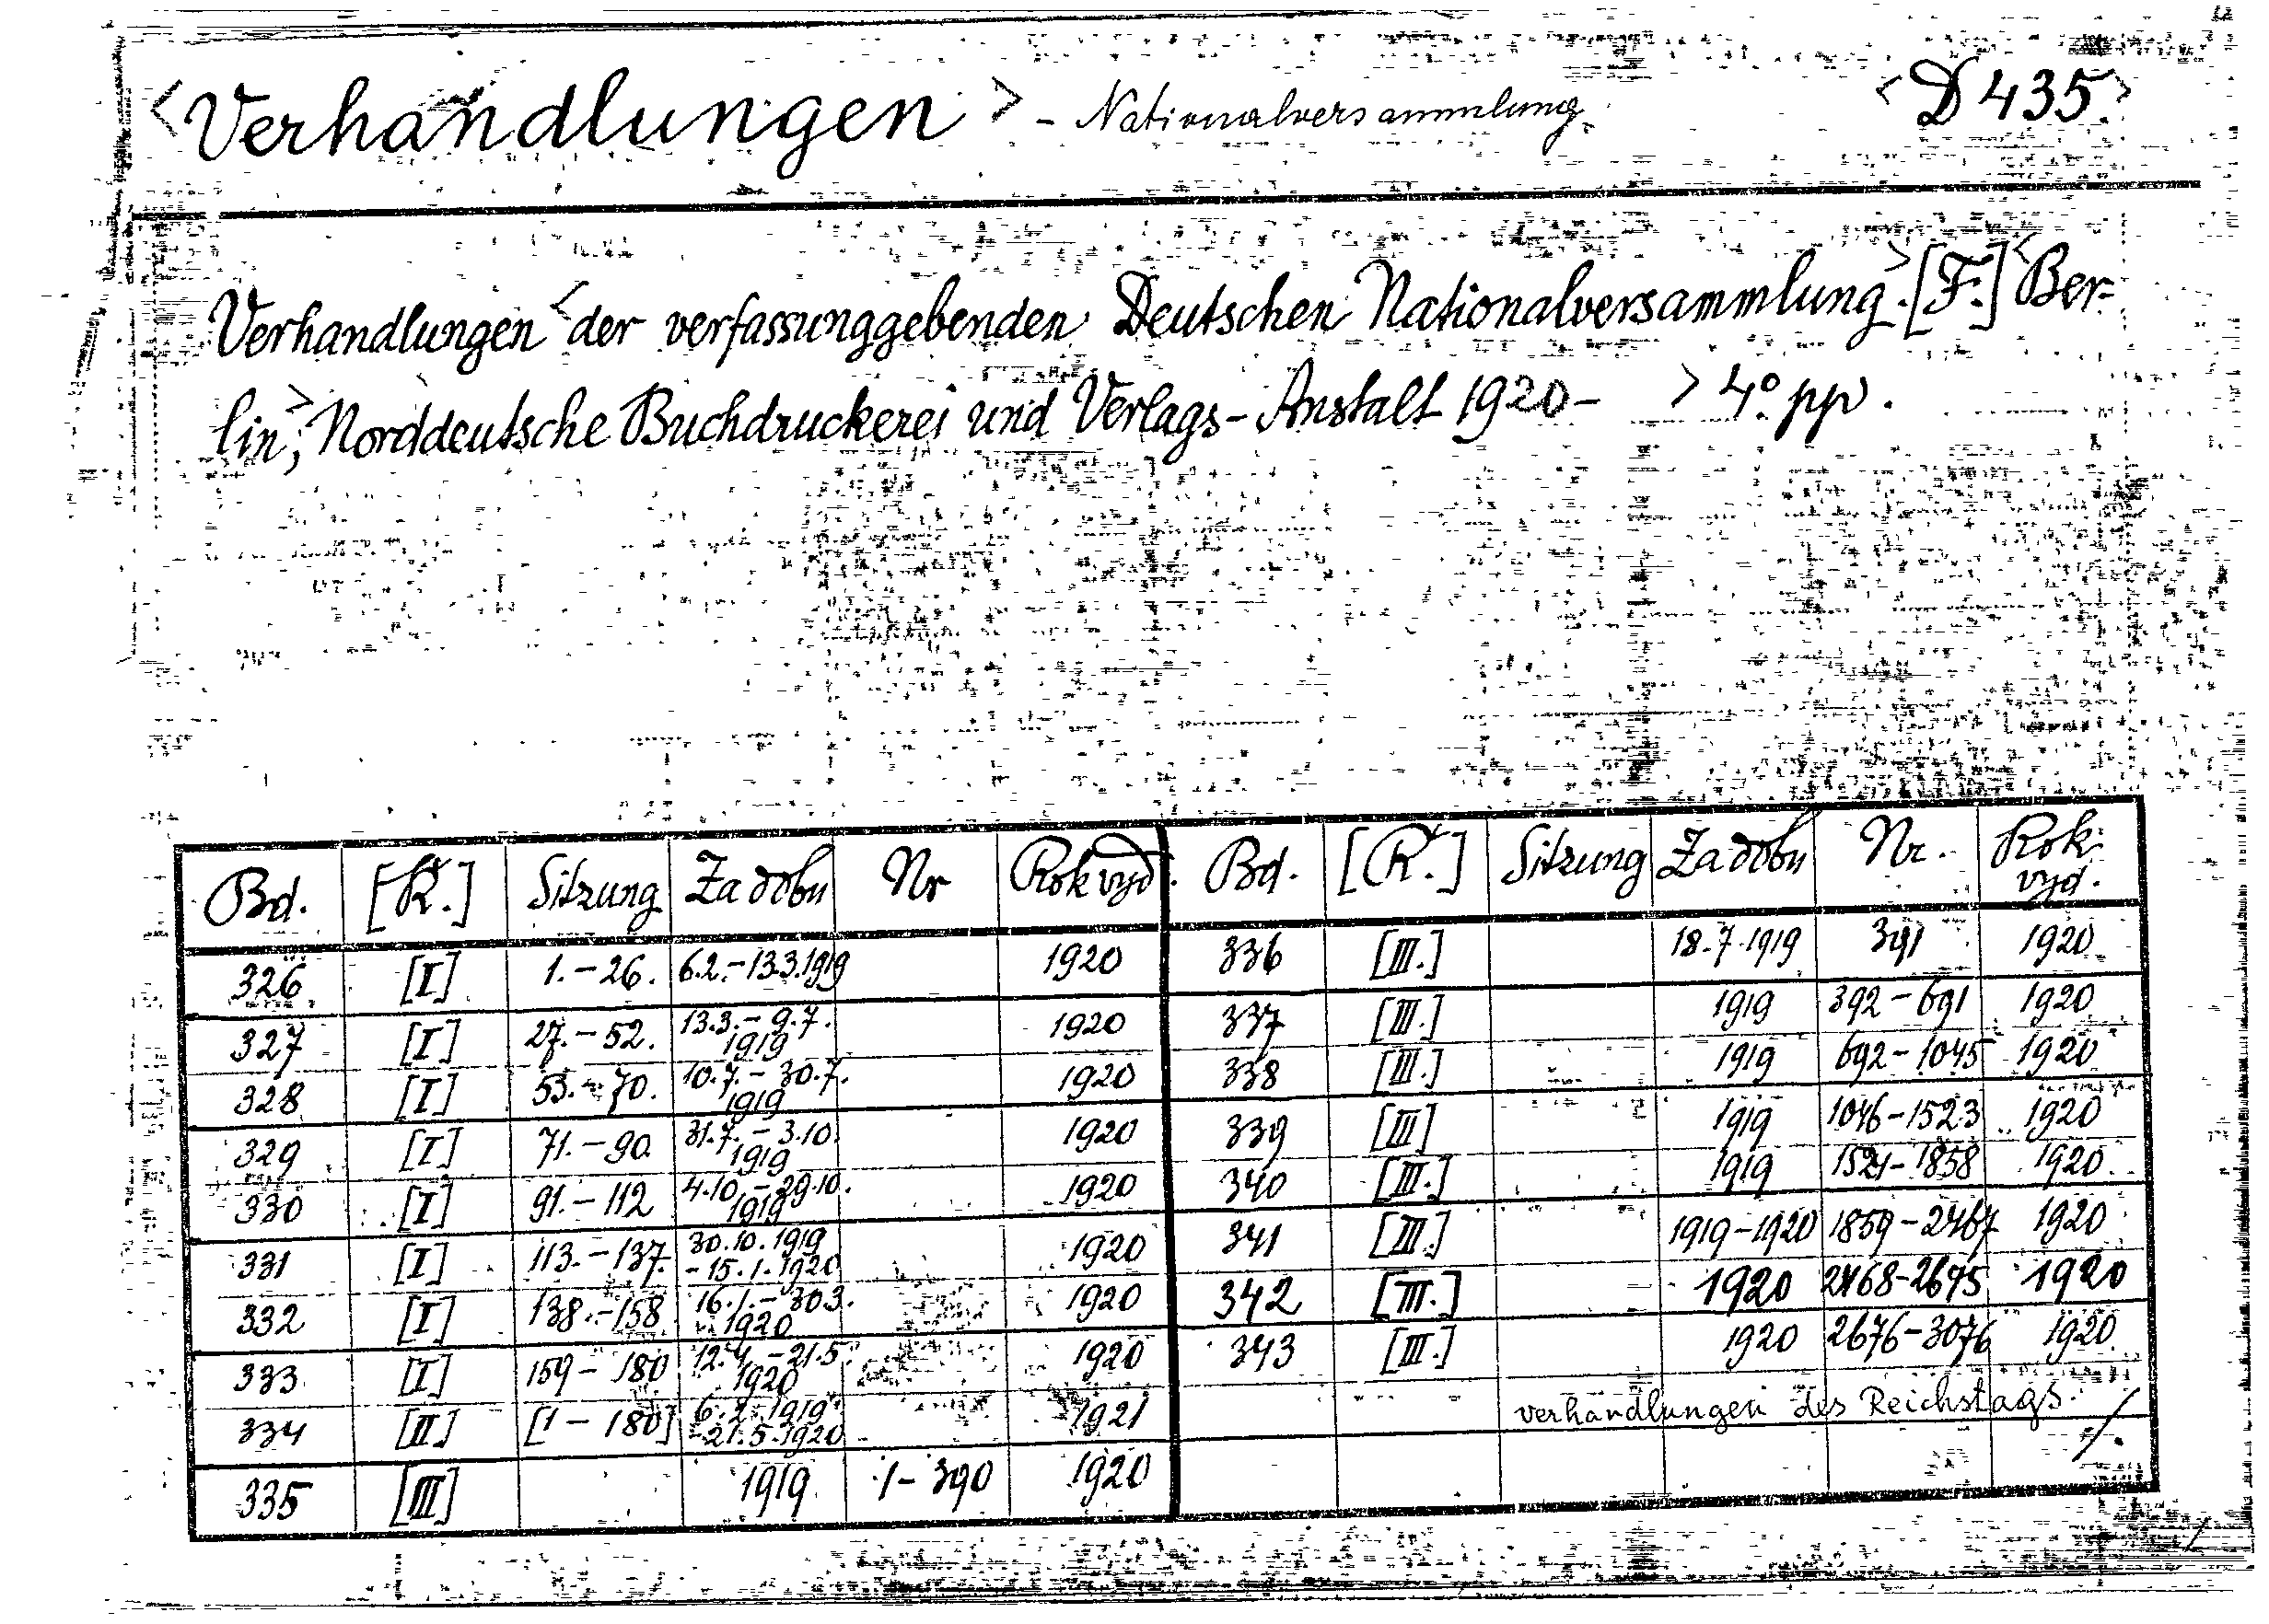 <Verhandlungen> - Nationalversammlung.
<D 435.>
Verhandlungen <der verfassunggebenden Deutschen Nationalversammlung.> [F.] <Ber=
lin,> Norddeutsche Buchdruckerei und Verlags-Anstalt 1920- > 4° pp.
Bd. [Ř.] Sitzung Za dobu Nr Rok vyd. Bd. [Ř.] Sitzung Za dobu Nr. Rok vyd.
326 [I] 1.-26. 6.2.-13.3.1919 1920 336 [III.] 18.7.1919 391 1920
327 [I] 27.-52. 13.3.-9.7. 1919 1920 337 [III.] 1919 392-691 1920
328 [I] 53.-70. 10.7.-30.7. 1919 1920 338 [III.] 1919 692-1045 1920
329 [I] 71.-90. 31.7.-3.10. 1919 1920 339 [III] 1919 1046-1523 1920
330 [I] 91.-112 4.10.-29.10. 1919 1920 340 [III.] 1919 1524-1858 1920
331 [I] 113.-137. 30.10.1919 -15.1.1920 1920 341 [III.] 1919-1920 1859-2467 1920
332 [I] 138.-158 16.1.-30.3. 1920 1920 342 [III.] 1920 2468-2675 1920
333 [I] 159-180 12.4.-21.5. 1920 1920 343 [III.] 1920 2676-3076 1920
334 [II] [1-180] 6.2.1919 -21.5.1920 1921 verhandlungen des Reichstags. /.
335 [III] 1919 1-390 1920